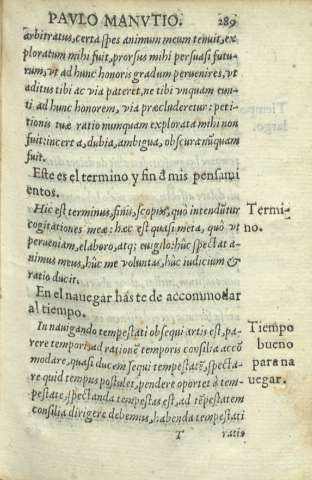 PAVLO MANVTIO. 289
arbitratus, certa spes animum meum tenuit, ex
ploratum mihi fuit, prorsus mihi persuasi futu-
rum, vt ad hunc honoris gradum peruenires, vt
aditus tibi ac via pateret, ne tibi vnquam eun-
ti ad hunc honorem, via præcluderetur: peti-
tionis tuæ ratio nunquam explorata mihi non
fuit: incerta, dubia, ambigua, obscura nũquam
fuit.
Este es el termino y fin d mis pensami
entos.
Hic est terminus, finis, scopus, quò intendũtur
cogitationes meæ: hæc est quasi meta, quò vt
perueniam, elaboro, atq; euigilo: hùc spectat a-
nimus meus, hùc me voluntas, hùc iudicium &
ratio ducit.
Termi-
no.
En el nauegar has te de accommodar
al tiempo.
In nauigando tempestati obsequi artis est, pa-
rere tempori, ad rationẽ temporis consilia accõ
modare, quasi ducem sequi tempestatẽ, specta-
re quid tempus postulet, pendere oportet à tem-
pestate, spectanda tempestas est, ad tẽpestatem
consilia dirigere debemus, habenda tempestati
Tiempo
bueno
para na
uegar.
T ratio